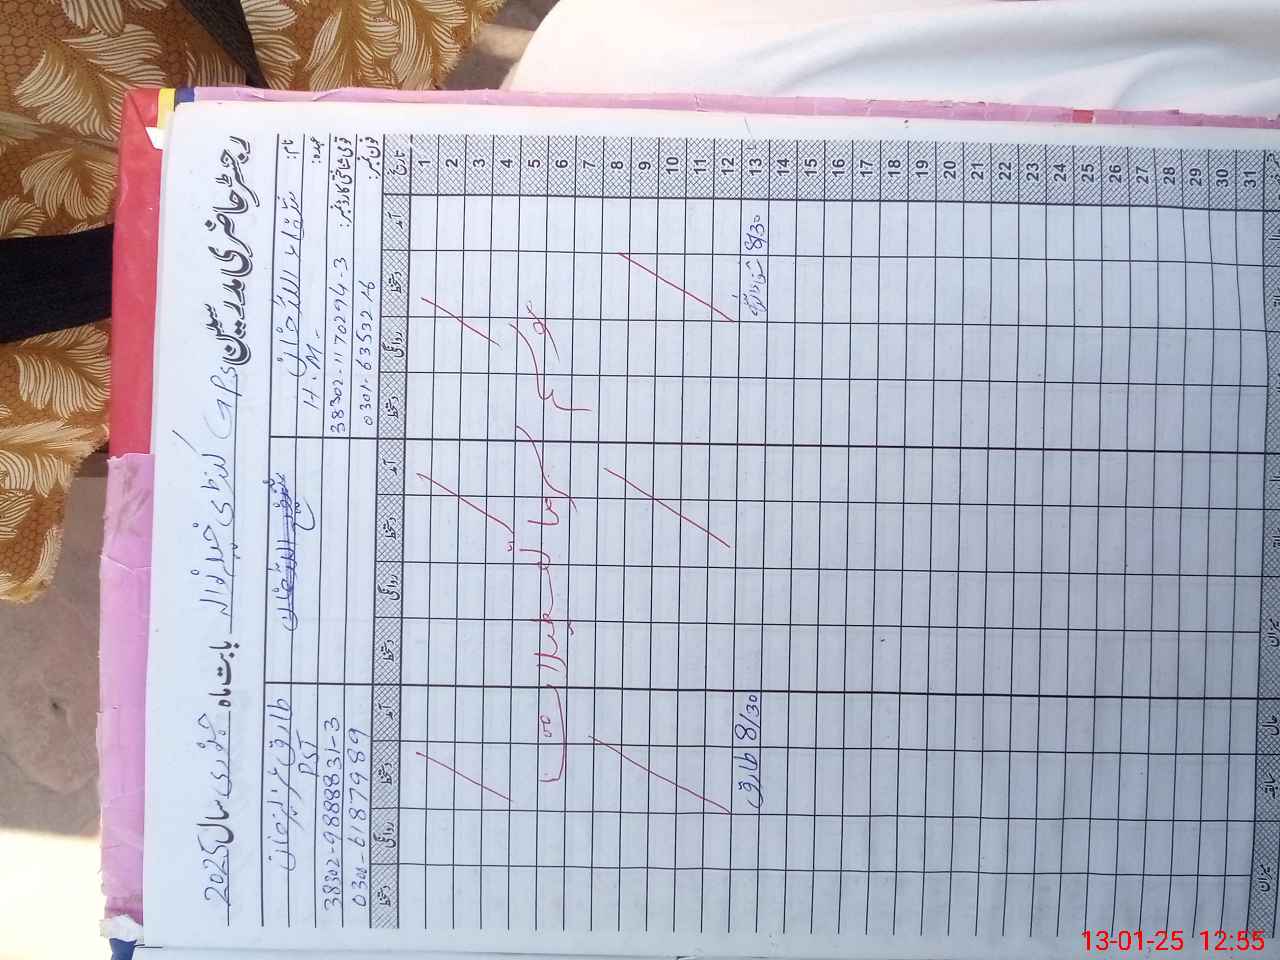 رجسٹر حاضری مدرسین GPS خیلزمانہ بابت ماہ جنوری سال 2025
نام: شفاء اللہ خان
عہدہ: H.M.
قومی شناختی کارڈ نمبر: 38302-1170294-3
فون نمبر: 0301-6353216
طارق
PST
38302-9888831-3
0300-6187989
تاریخ آمد دستخط روانگی دستخط آمد دستخط روانگی دستخط آمد دستخط روانگی دستخط
1
2
3
4
5
موسم سرما تعطیلات
6
7
8
9
10
11
12
13 8/30 طارق 8/30
14
15
16
17
18
19
20
21
22
23
24
25
26
27
28
29
30
31
میزان
سابقہ
میزان
13-01-25 12:55